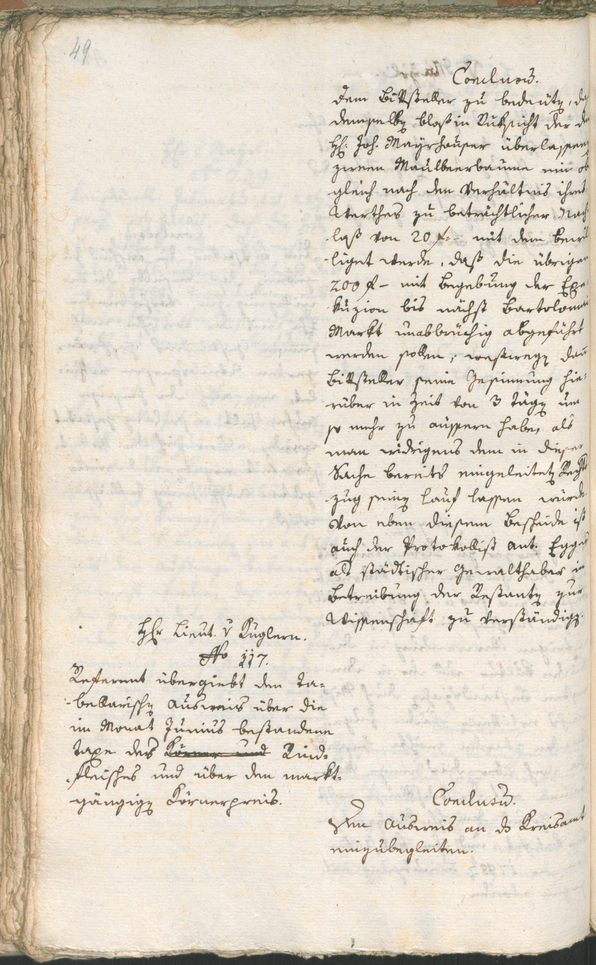 49
Conclusum.
Dem Bittsteller zu bedeuten, daß
demselben bloß in Rüksicht der dem
H: Joh. Mayrhauser überlassenen
zween Maulbeerbäume ein ob-
gleich nach den Verhältnis ihres
Werthes zu beträchtlicher Nach-
laß von 20 f - mit dem bewil-
liget werde, daß die übrigen
200 f - mit Begebung der Exe-
kuzion bis nächst Bartolomei
Markt unabbrüchig abgeführt
werden sollen; westwegen der
Bittsteller seine Gesinnung hie-
rüber in Zeit von 3 Tägen um
so mehr zu äussern habe, als
man widrigens dem in dieser
Sache bereits eingeleiteten Rechts-
zug seinen Lauf lassen würde.
Von eben diesem Bescheide ist
auch der Protokollist Ant. Egger
als städtischer Gewalthaber in
Betreibung der Restanten zur
Wissenschaft zu verständigen.
Hr Lieut. v Kuglern.
No 117.
Referent übergiebt den ta-
bellarischen Ausweis über die
im Monat Junius bestandene
taxe des Körner und Rind-
fleisches und über den markt-
gängigen Körnerpreis.
Conclusum.
Den Ausweis an das Kreisamt
einzubegleiten.